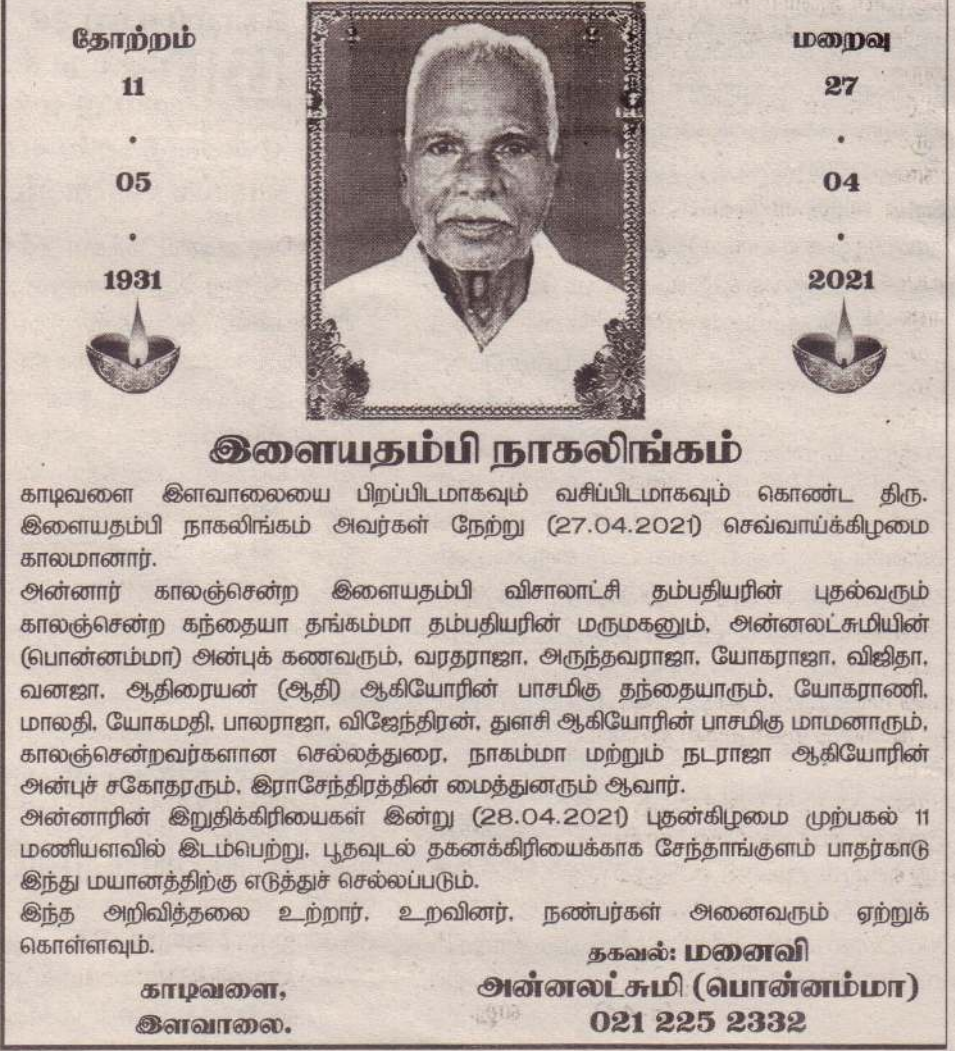 தோற்றம்
11
.
05
.
1931
மறைவு
27
.
04
.
2021
இளையதம்பி நாகலிங்கம்
காடிவளை இளவாலையை பிறப்பிடமாகவும் வசிப்பிடமாகவும் கொண்ட திரு.
இளையதம்பி நாகலிங்கம் அவர்கள் நேற்று (27.04.2021) செவ்வாய்க்கிழமை
காலமானார்.
அன்னார் காலஞ்சென்ற இளையதம்பி விசாலாட்சி தம்பதியரின் புதல்வரும்
காலஞ்சென்ற கந்தையா தங்கம்மா தம்பதியரின் மருமகனும், அன்னலட்சுமியின்
(பொன்னம்மா) அன்புக் கணவரும், வரதராஜா, அருந்தவராஜா, யோகராஜா, விஜிதா,
வனஜா, ஆதிரையன் (ஆதி) ஆகியோரின் பாசமிகு தந்தையாரும், யோகராணி,
மாலதி, யோகமதி, பாலராஜா, விஜேந்திரன், துளசி ஆகியோரின் பாசமிகு மாமனாரும்,
காலஞ்சென்றவர்களான செல்லத்துரை, நாகம்மா மற்றும் நடராஜா ஆகியோரின்
அன்புச் சகோதரரும், இராசேந்திரத்தின் மைத்துனரும் ஆவார்.
அன்னாரின் இறுதிக்கிரியைகள் இன்று (28.04.2021) புதன்கிழமை முற்பகல் 11
மணியளவில் இடம்பெற்று, பூதவுடல் தகனக்கிரியைக்காக சேந்தாங்குளம் பாதர்காடு
இந்து மயானத்திற்கு எடுத்துச் செல்லப்படும்.
இந்த அறிவித்தலை உற்றார், உறவினர், நண்பர்கள் அனைவரும் ஏற்றுக்
கொள்ளவும்.
தகவல்: மனைவி
அன்னலட்சுமி (பொன்னம்மா)
021 225 2332
காடிவளை,
இளவாலை.